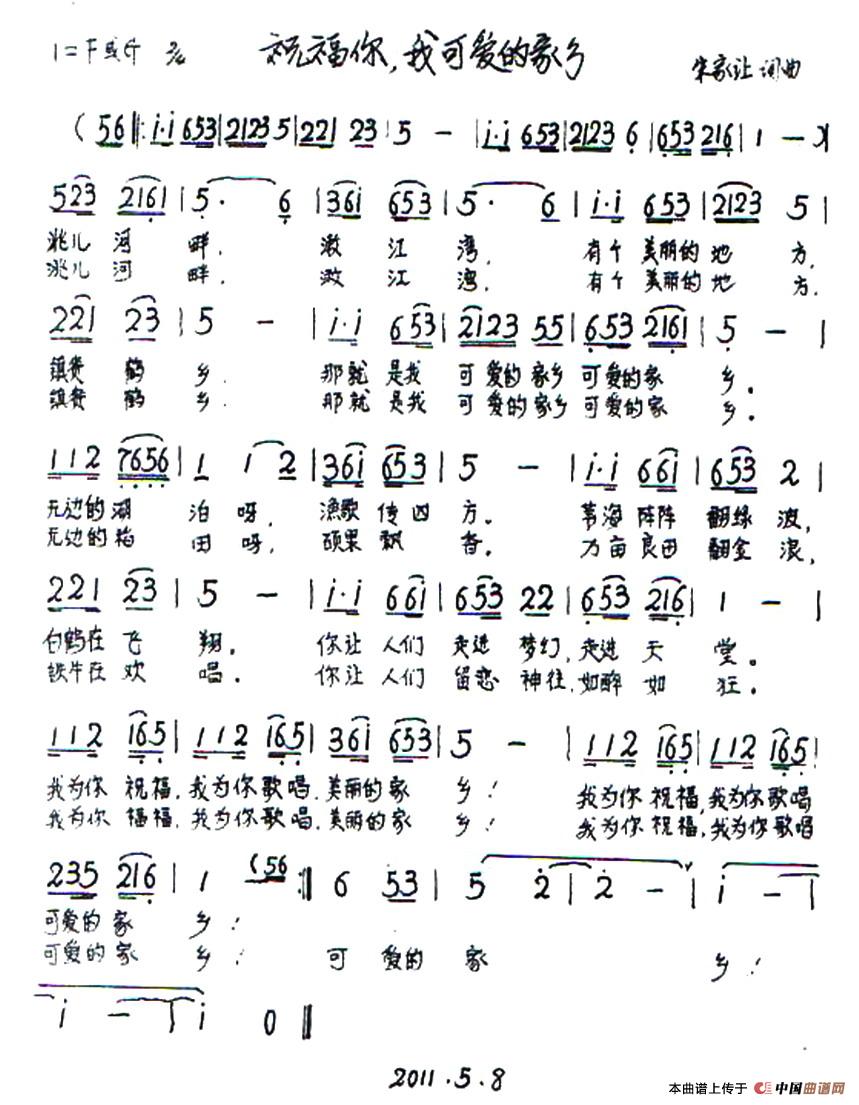 1=F或G 2/4 祝福你,我可爱的家乡
朱家让 词曲
(56‖:i·i 653|2123 5|221 23|5 -|i·i 653|2123 6|653 216|1 -)|
523 2161|5· 6|361 653|5· 6|i·i 653|2123 5|
洮儿河畔, 湾, 有个美丽的地方,
洮儿河畔, 湾, 有个美丽的地方,
221 23|5 -|i·i 653|2123 55|653 2161|5 -|
镇赉鹤乡. 那就是我可爱的家乡可爱的家乡。
镇赉鹤乡. 那就是我可爱的家乡可爱的家乡。
112 7656|1 12|36i 653|5 -|i·i 66i|653 2|
无边的湖泊呀, 渔歌传四方。 苇海阵阵翻绿波,
无边的稻田呀, 硕果飘香。 万亩良田翻金浪,
221 23|5 -|i·i 66i|653 22|653 216|1 -|
白鹤在飞翔。 你让人们走进梦幻,走进天堂。
铁牛在欢唱。 你让人们留恋神往,如醉如狂。
112 165|112 165|36i 653|5 -|112 165|112 165|
我为你祝福,我为你歌唱,美丽的家乡! 我为你祝福,我为你歌唱
我为你福,我为你歌唱,美丽的家乡! 我为你祝福,我为你歌唱
235 216|1 (56:‖6 53|5 2|2 -|i -|
可爱的家乡!
可爱的家乡! 可爱的家乡!
i -|i 0‖
2011.5.8
本曲谱上传于 中国曲谱网